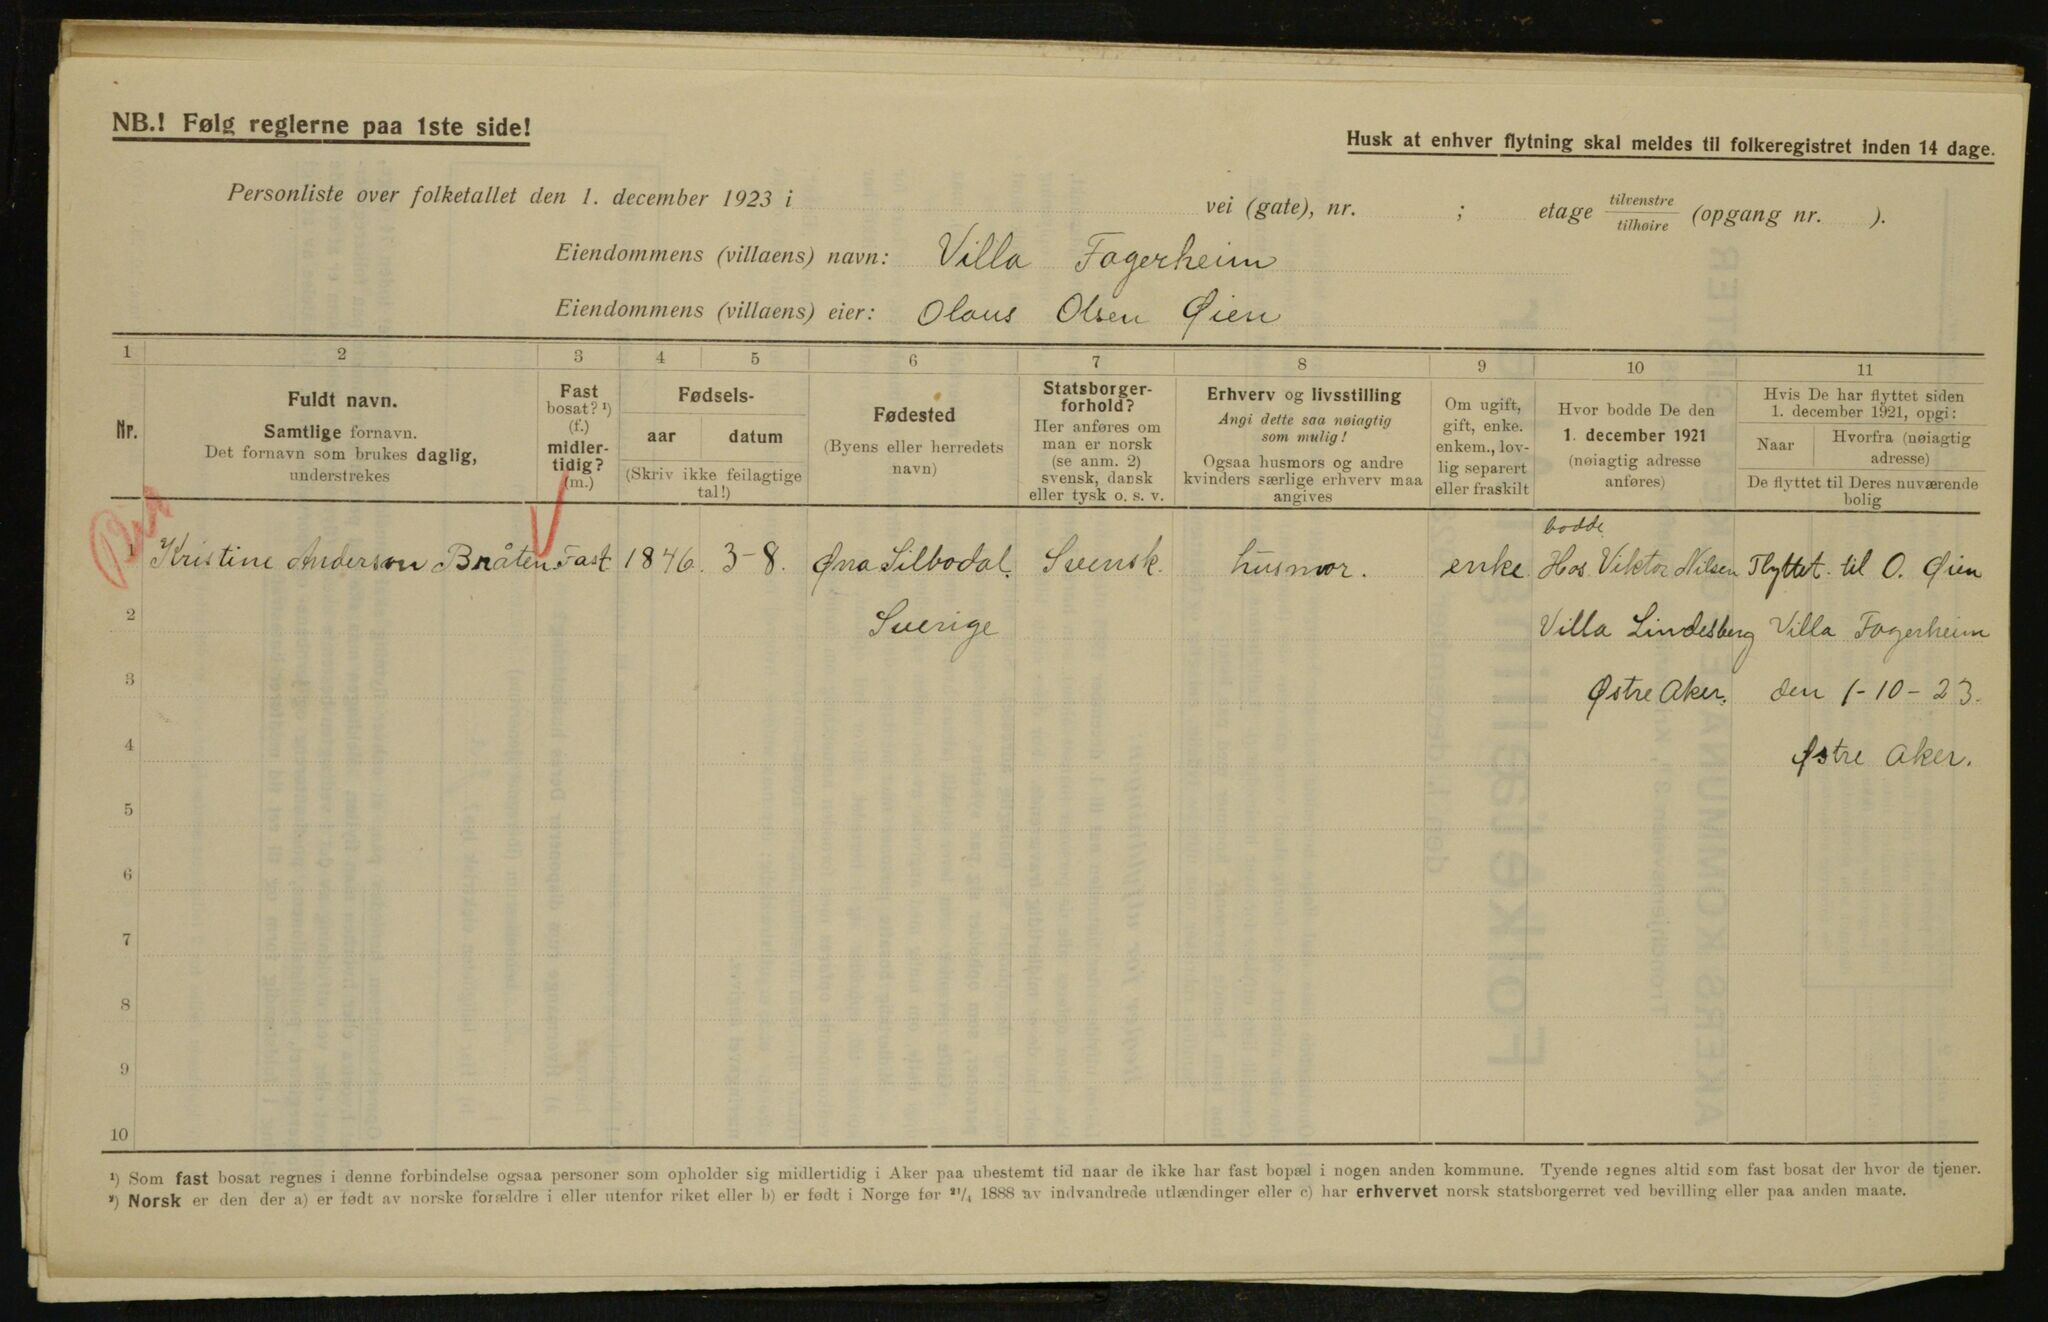 NB.! Følg reglerne paa 1ste side!
Husk at enhver flytning skal meldes til folkeregistret inden 14 dage.
Personliste over folketallet den 1. december 1923 i vei (gate), nr. ; etage tilvenstre/tilhøire (opgang nr. ).
Eiendommens (villaens) navn: Villa Fagerheim
Eiendommens (villaens) eier: Olaus Olsen Øien
1 2 3 4 5 6 7 8 9 10 11
Nr.
Fuldt navn.
Samtlige fornavn.
Det fornavn som brukes daglig,
understrekes
Fast
bosat? ¹)
(f.)
midler-
tidig?
(m.)
Fødsels-
aar datum
(Skriv ikke feilagtige
tal!)
Fødested
(Byens eller herredets
navn)
Statsborger-
forhold?
Her anføres om
man er norsk
(se anm. 2)
svensk, dansk
eller tysk o. s. v.
Erhverv og livsstilling
Angi dette saa nøiagtig
som mulig!
Ogsaa husmors og andre
kvinders særlige erhverv maa
angives
Om ugift,
gift, enke.
enkem., lov-
lig separert
eller fraskilt
Hvor bodde De den
1. december 1921
(nøiagtig adresse
anføres)
Hvis De har flyttet siden
1. december 1921, opgi:
Naar Hvorfra (nøiagtig
adresse)
De flyttet til Deres nuværende
bolig
bodde
1 Kristine Anderson Bråten Fast 1846. 3-8. Øna Silbodal. Svensk. husmor. enke Hos Viktor Nilsen Flyttet til O. Øien
2 Sverige Villa Lindesberg Villa Fagerheim
3 Østre Aker. den 1-10-23.
4 Østre Aker.
5
6
7
8
9
10
¹) Som fast bosat regnes i denne forbindelse ogsaa personer som opholder sig midlertidig i Aker paa ubestemt tid naar de ikke har fast bopæl i nogen anden kommune. Tyende regnes altid som fast bosat der hvor de tjener.
²) Norsk er den der a) er født av norske forældre i eller utenfor riket eller b) er født i Norge før ²¹/₄ 1888 av indvandrede utlændinger eller c) har erhvervet norsk statsborgerret ved bevilling eller paa anden maate.